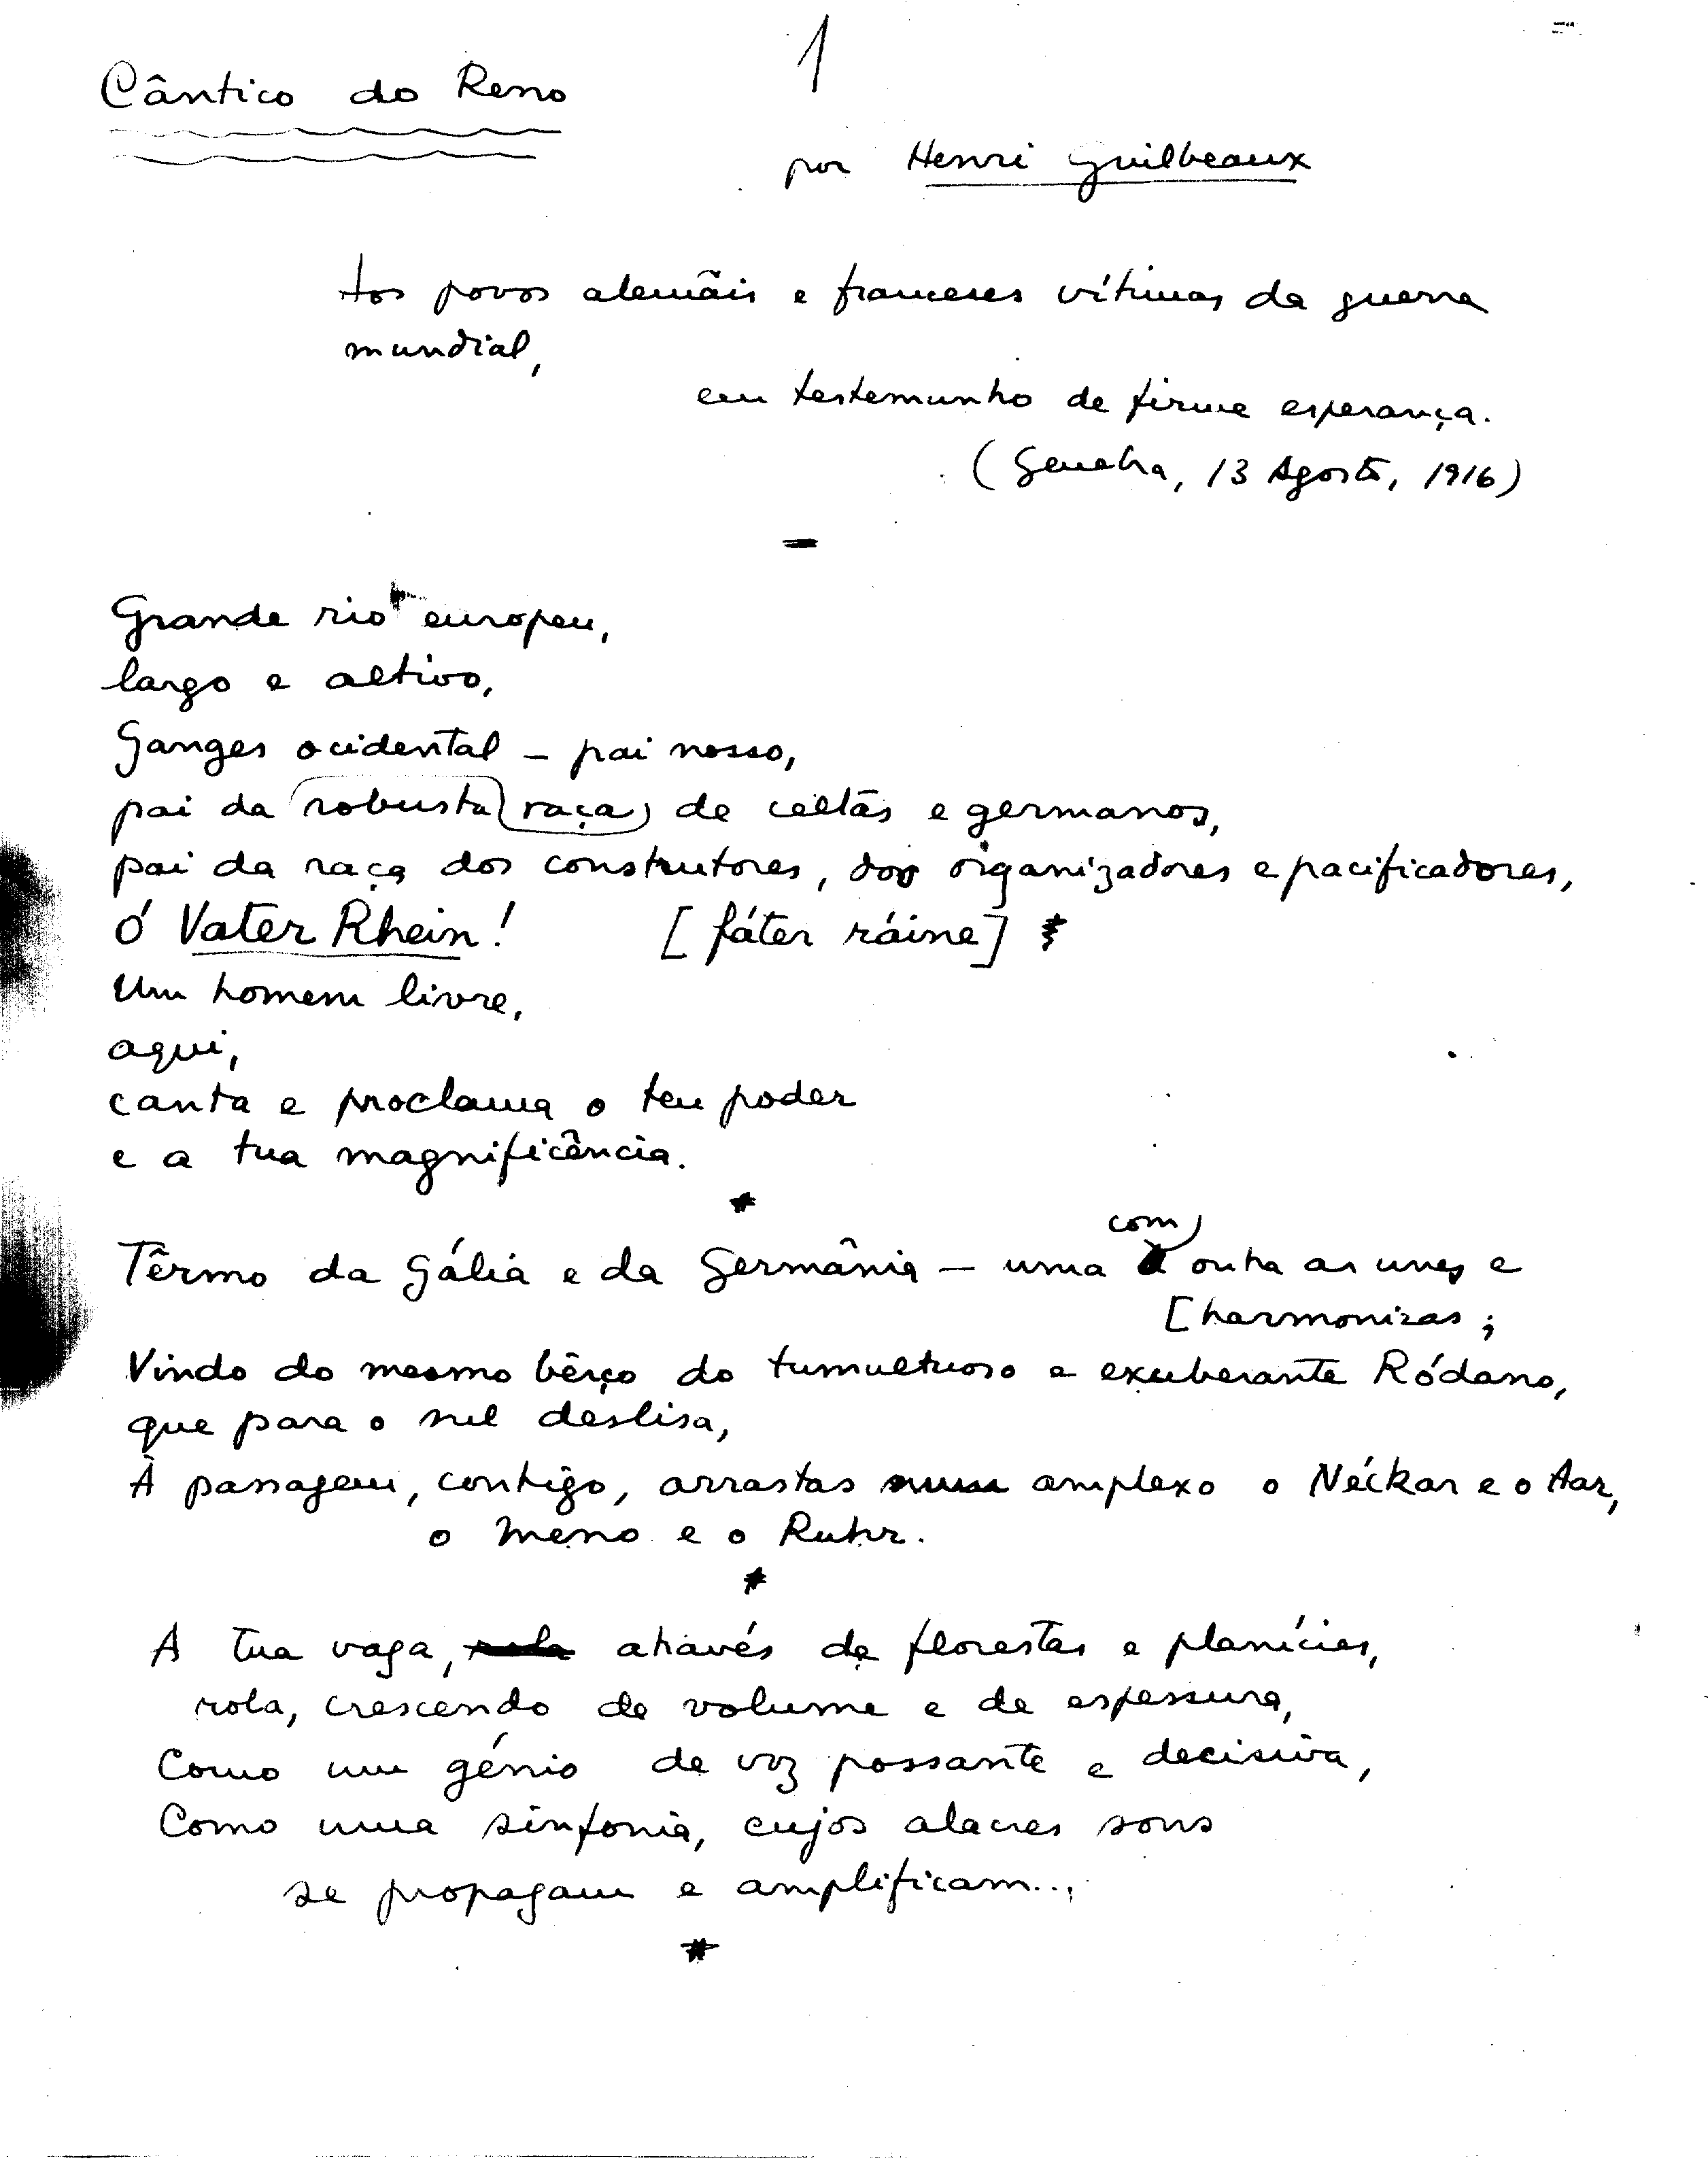 1
Cântico do Reno
por Henri Guilbeaux
Aos povos alemãis e franceses vítimas da guerra
mundial,
em testemunho de firme esperança.
(Genebra, 13 Agosto, 1916)
Grande rio europeu,
largo e altivo,
Ganges ocidental – pai nosso,
pai da robusta raça de celtas e germanos,
pai da raça dos construtores, dos organizadores e pacificadores,
Ó Vater Rhein! [fáter ráine]
Um homem livre,
aqui,
canta e proclama o teu poder
e a tua magnificência.
*
com
Têrmo da Gália e da Germânia – uma a outra as unes e
[harmonizas;
Vindo do mesmo bêrço do tumultuoso e exuberante Ródano,
que para o sul deslisa,
À passagem, contigo, arrastas num amplexo o Néckar e o Aar,
o Meno e o Ruhr.
*
A tua vaga, rola através de florestas e planícies,
rola, crescendo de volume e de espessura,
Como um génio de voz possante e decisiva,
Como uma sinfonia, cujos alacres sons
se propagam e amplificam...
*